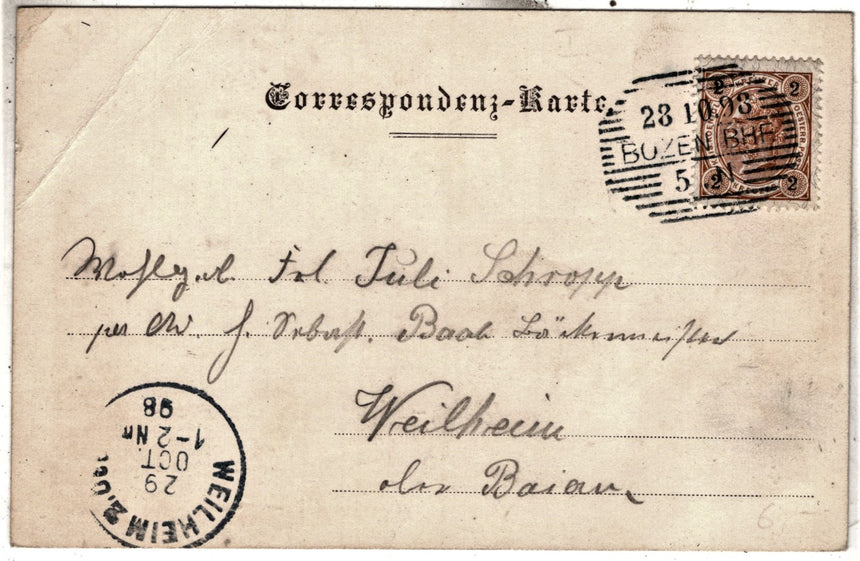 Correspondenz-Karte
23 10.98
BOZEN BHF.
5 N
2 2
2 2
Wohlgeb. Frl Juli Schropp
per Adr. H. Sebast. Baab Bäckermeister
Weilheim
Ober Baiern
WEILHEIM 2,0
29
OCT.
1-2 Nm
98
6,-